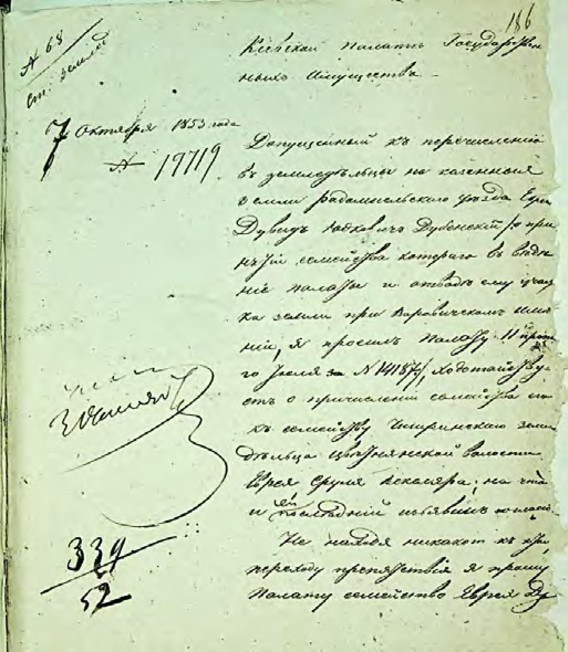 186
№ 68
ст. землед
Кіевской Палатѣ Государствен
ныхъ Имуществъ
7 Октября 1853 года
№ 19719
Допущенный къ перечисленію
въ земледѣльцы на казенныя
земли Радомысльскаго уѣзда Еврей
Дувидъ Дубенскій, о при
нятіи семейства котораго въ вѣдѣ
ніе палаты и отводѣ ему участ
ка земли при Варовичскомъ имѣ
ніи, я просилъ Палату 11
Іюля за № 14187, ходатайству
етъ о причисленіи семейства его
къ семейству Чигринскаго земле
дѣльца волости
Еврея Сруля на что
и послѣдній изъявилъ
Не находя никакого къ
переходу препятствія я прошу
Палату семейство Еврея Ду
339
52